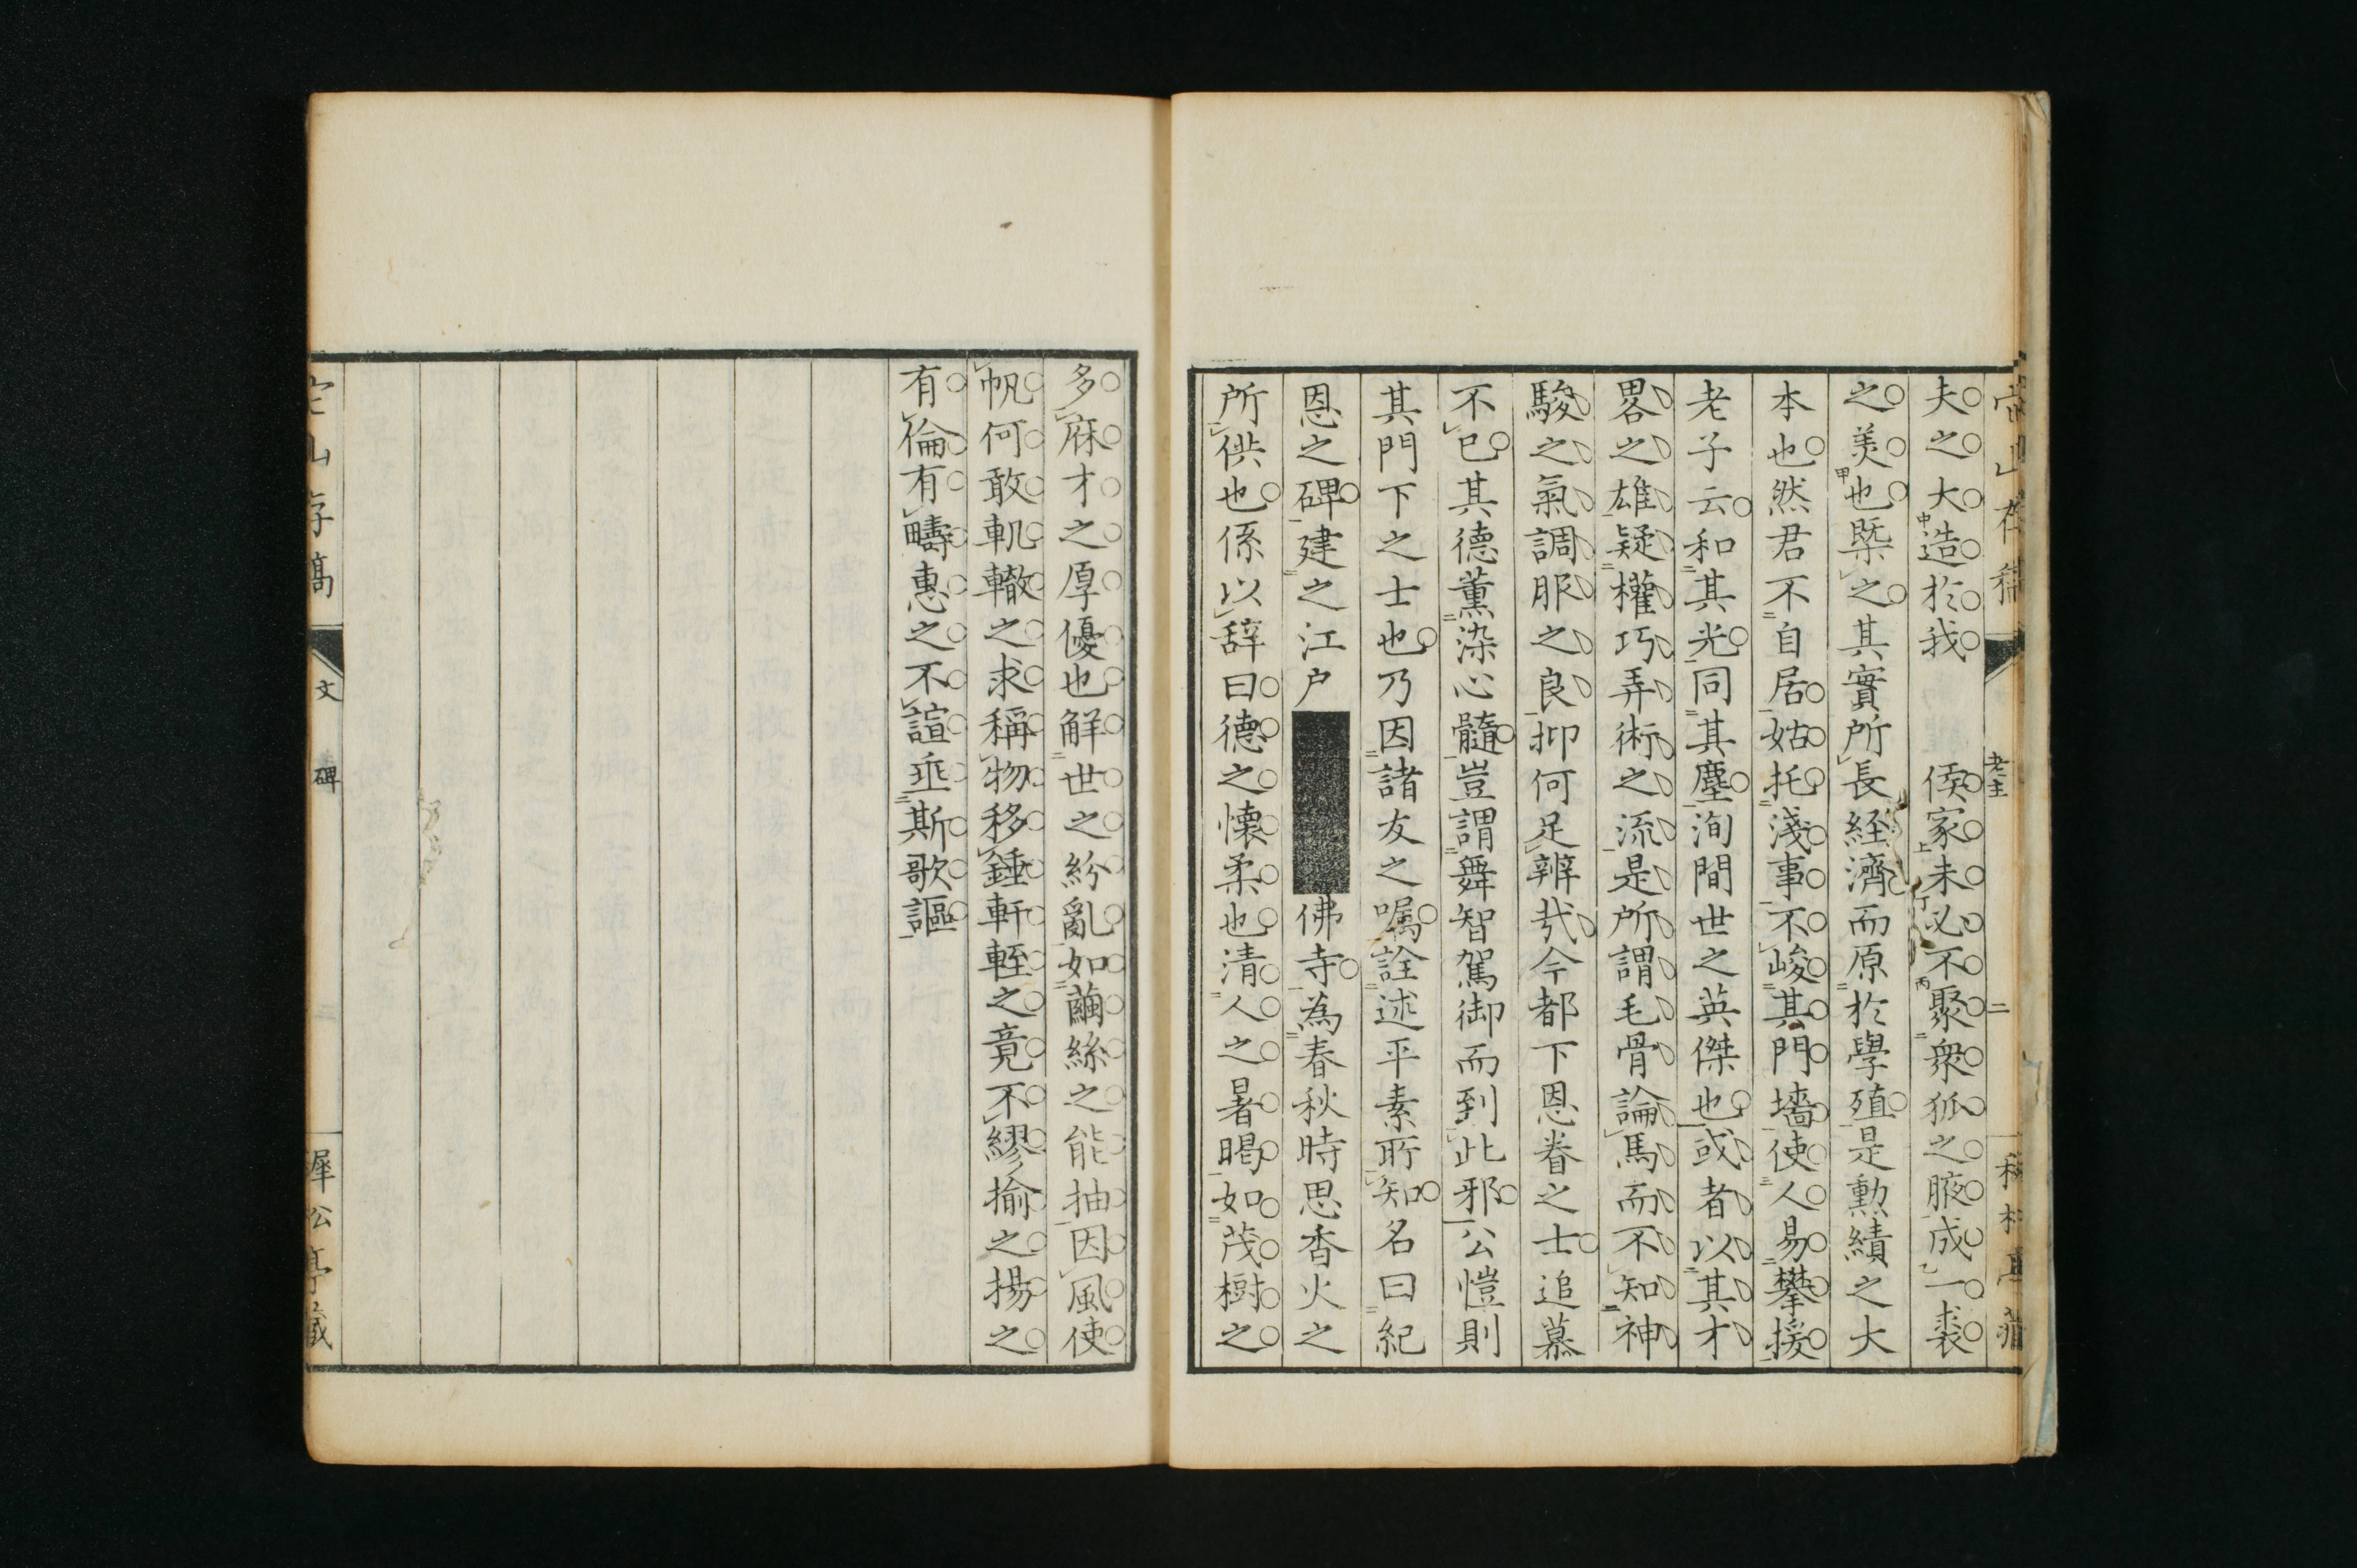 夫之大造於我　侯家未必不聚衆狐之腋成一裘
之美也槩之其實所長経濟而原於學殖是勲績之大
本也然君不自居姑托淺事不峻其門墻使人易攀援
老子云和其光同其塵洵間世之英傑也或者以其才
畧之雄疑權巧弄術之流是所謂毛骨論馬而不知神
駿之氣調服之良抑何足辨哉今都下恩眷之士追慕
不已其德薫染心髓豈謂舞智駕御而到此邪公愷則
其門下之士也乃因諸友之嘱詮述平素所知名曰紀
恩之碑建之江户佛寺為春秋時思香火之
所供也係以辞曰德之懐柔也清人之暑暍如茂樹之
多庥才之厚優也解世之紛亂如繭絲之能抽因風使
帆何敢軏轍之求稱物移錘軒輊之竟不繆揄之揚之
有倫有疇惠之不諠垂斯歌謳
山存稿
文
碑
犀公亭藏
老主
二